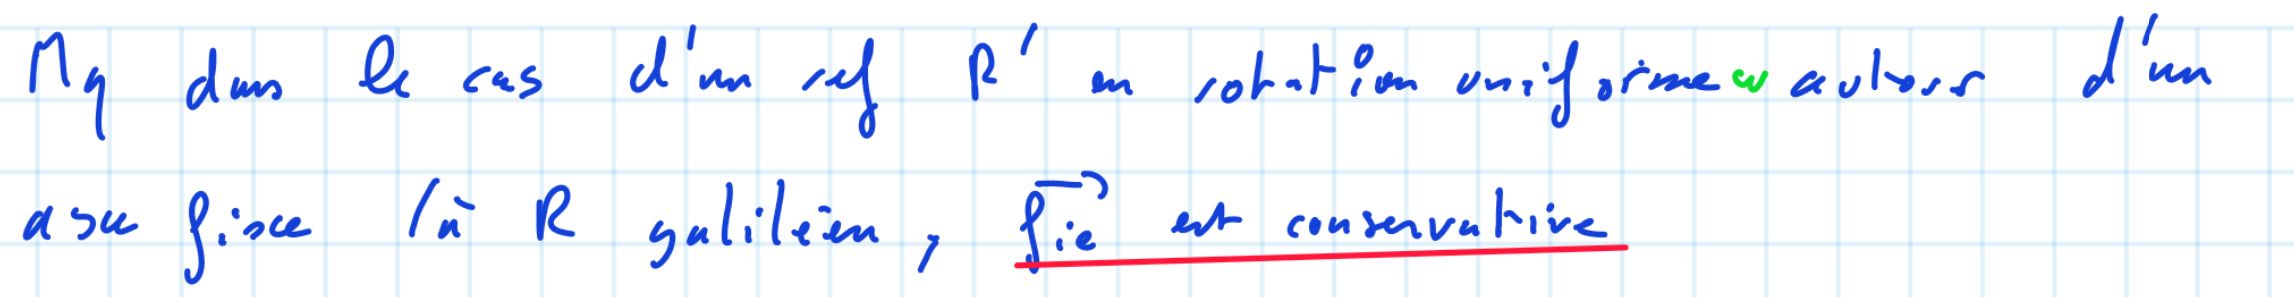 Mq dans le cas d'un ref R' en rotation uniforme ω autour d'un
axe fixe / à R galiléen, f⃗ie est conservative